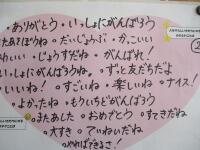 ・ありがとう・いっしょにがんばろう
またあそぼうね・だいじょうぶ・かっこいい
かわいい・じょうずだね・がんばれ!
・いっしょにがんばろうね。・ずっと友だちだよ
・いいね!・すごいね・楽しいね・ナイス!
・よかったね・もういちどがんばろう
・またあした・おめでとう・すてきだね
・大すき・ていねいだね
・やればできるさ!
②